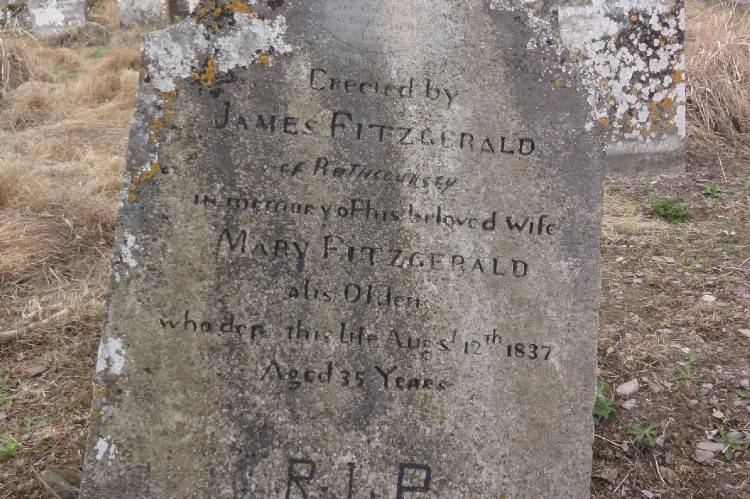 Erected by
JAMES FITZGERALD
of RATHCOURSEY
in memory of his beloved Wife
MARY FITZGERALD
alis Olden
who dep this life Augst 12th 1837
Aged 35 Years
R.I.P